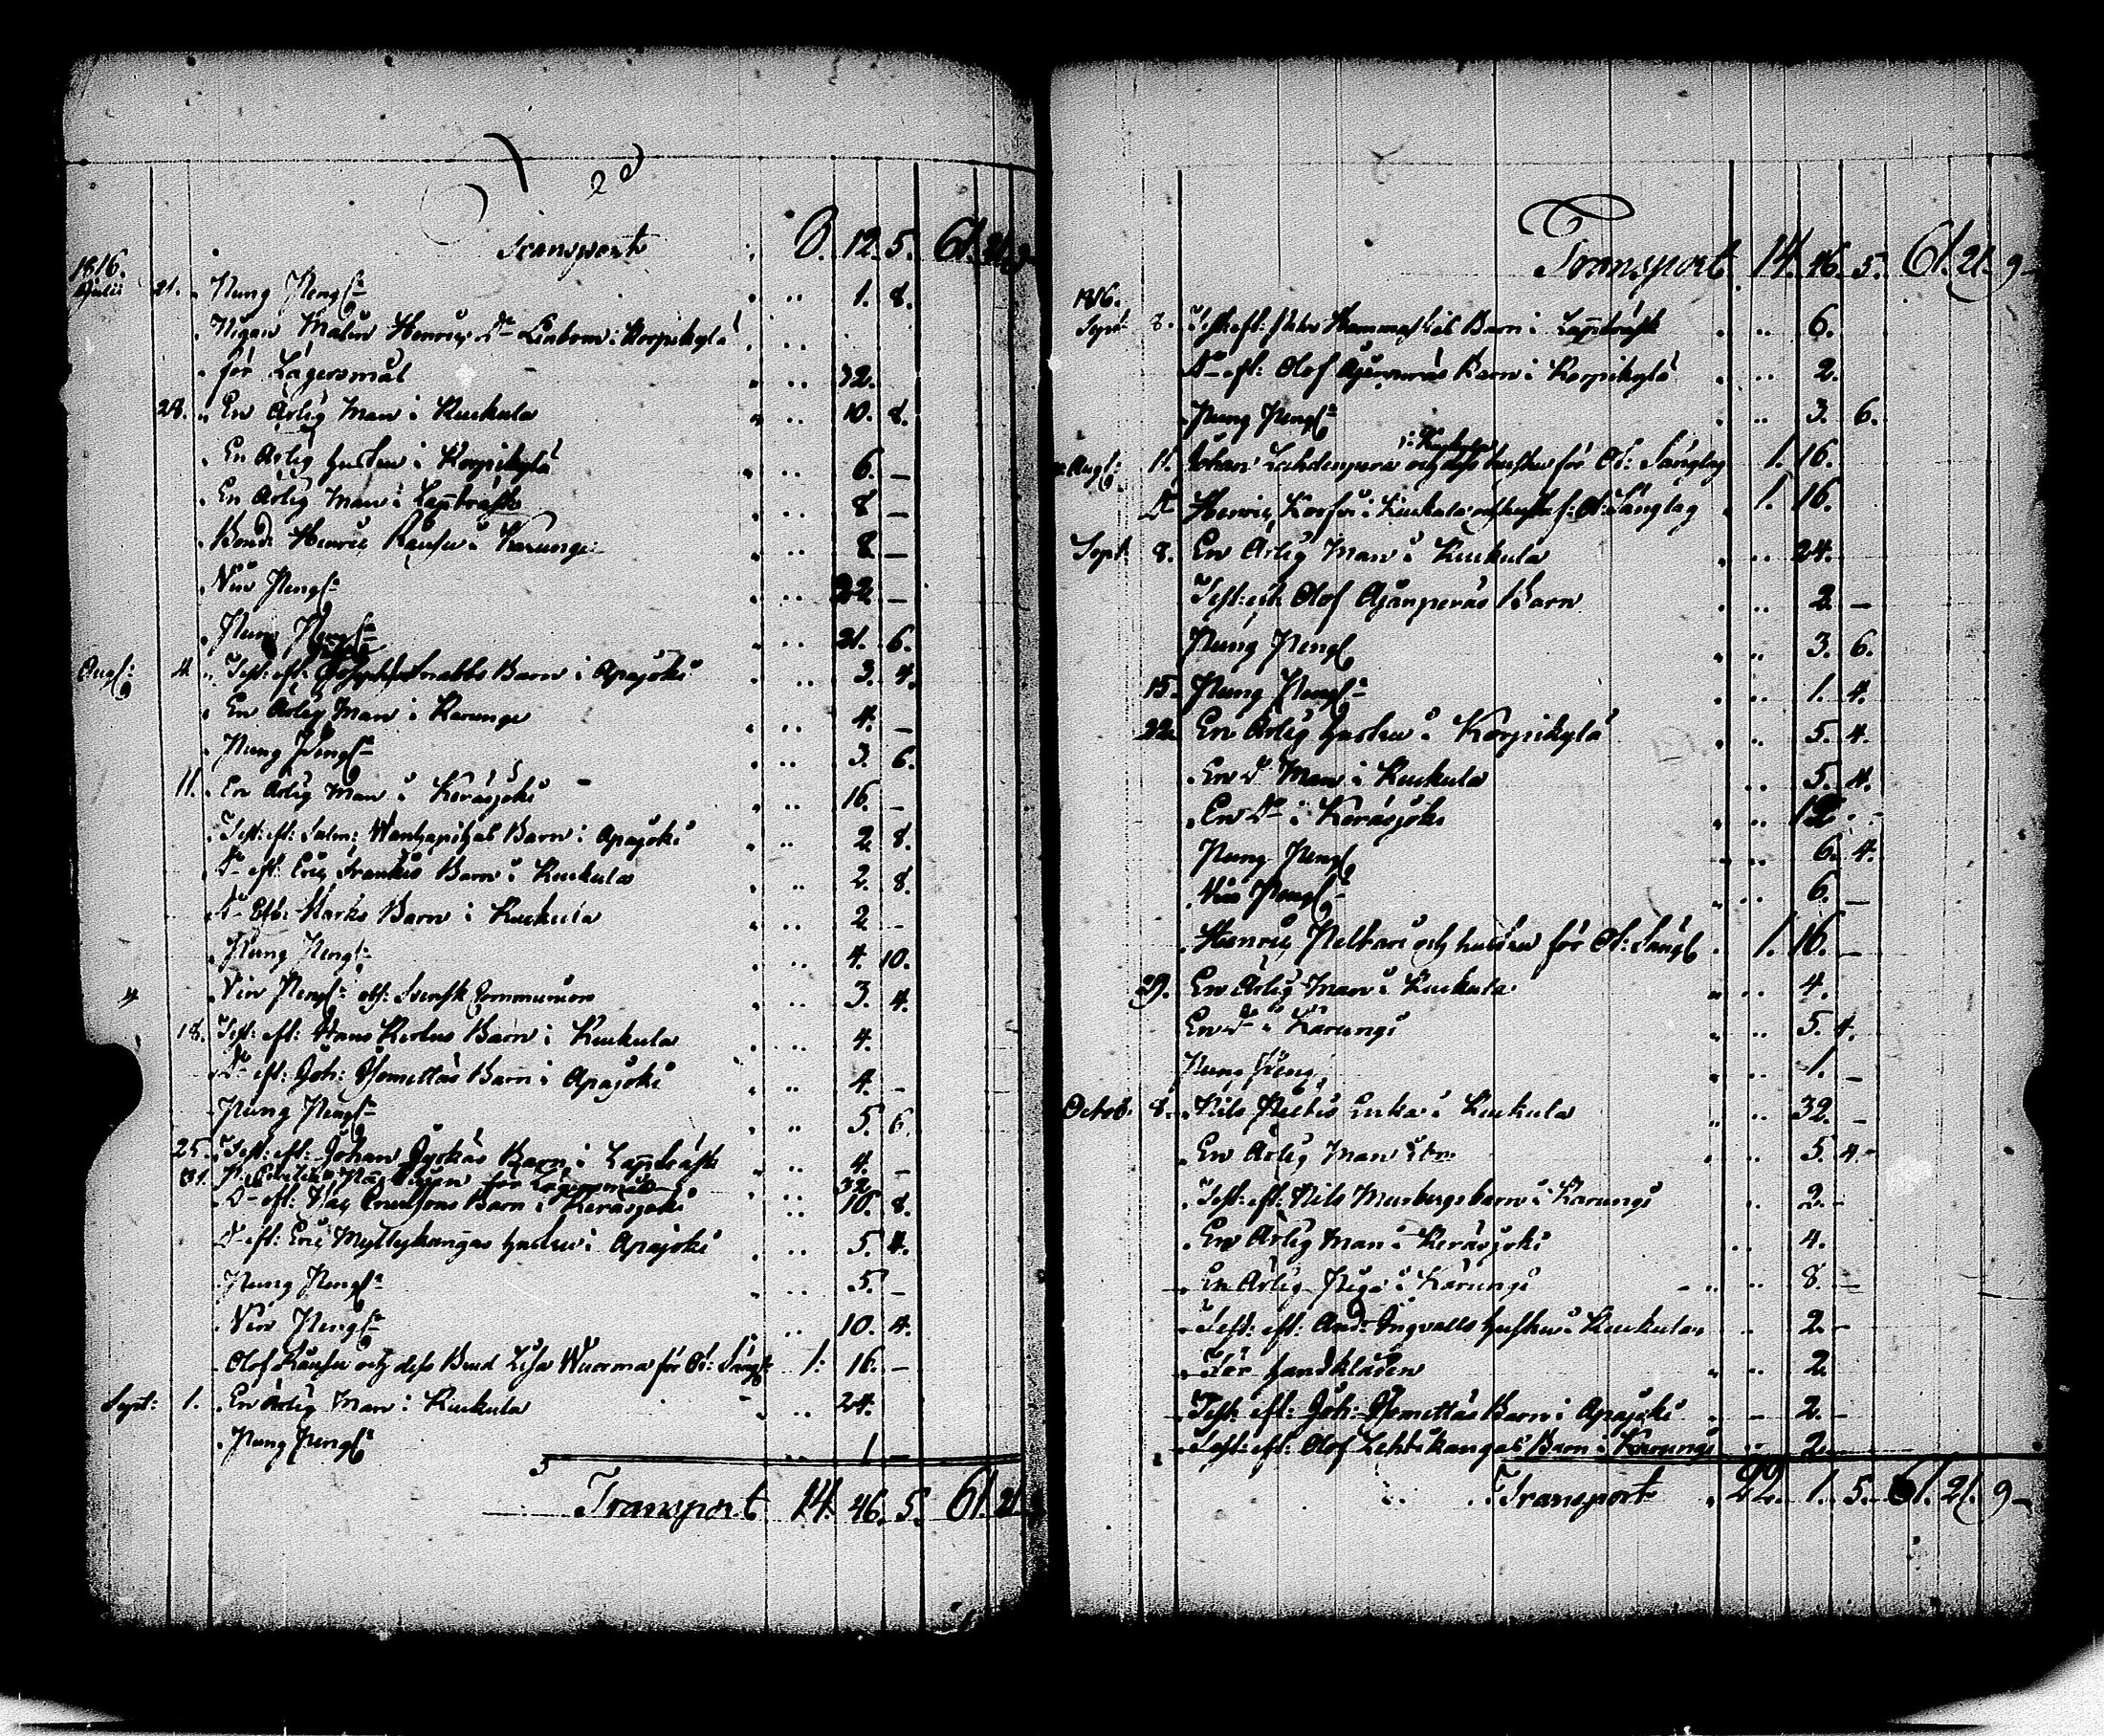 Transport . 8. 12. 5. 61. 21. 9
1816.
Julii 21. Pung Peng:r 1. 8.
Pigan Malin Henrics D:r Linbom i Korpikylä
för Lägersmål 32.
28. En Ärlig Man i Kuckula 10. 8.
En Ärlig hustru i Korpikylä 6. —
En Ärlig Man i Lappträsk 8 —
Bond: Henric Kauhu i Karungi 8 —
Vin Peng:r 22 —
Pung Peng:r 21. 6.
Aug: 4. Test: eft: Joseph Snabbs Barn i Apajoki 3. 4.
En Ärlig Man i Karungi 4. —
Pung Peng:r 3. 6.
11. En Ärlig Man i Keräsjoki 16. —
Test: eft: Salm: Wanhapihas Barn i Apajoki 2. 8.
D:o eft: Eric Frankis Barn i Kuckula 2. 8.
D:o Eft: Starks Barn i Kuckula 2 —
Pung Peng:r 4. 10.
Vin Peng:r eft: Svensk Communion 3. 4.
18. Test: eft: Hans Kerttus Barn i Kuckula 4.
D:o eft: Joh: Niemettäs Barn i Apajoki 4. —
Pung Peng:r 5. 6.
25. Test: eft: Johan Jyrkäs Barn i Lappträsk 4. —
31. för Lägersmål 32.
D:o eft: Ericssons Barn i Keräsjoki 10. 8.
D:o eft: Eric Myllykangas hustru i Apajoki 5. 4.
Pung Peng:r 5. —
Vin Peng:r 10. 4.
Olof Kauhu och dess Brud Lisa Wuomma för Ot: Sängl: 1: 16. —
Sept: 1. En Ärlig Man i Kuckula 24.
Pung Peng:r 1 —
Transport 14. 46. 5. 61. 21.
Transport 14. 46. 5. 61. 21. 9
1816.
Sept: 8. Test: eft: Barn i Lappträsk 6.
D:o eft: Olof Äjänperäs Barn i Korpikylä 2.
Pung Peng:r 3. 6.
Aug: 11. Johan Lahdenperä och dess hustru i Kuckula för Ot: Sänglag 1. 16.
D:o Henric Korfvi i Kuckula och hustr f: Ot: Sänglag 1. 16.
Sept: 8. En Ärlig Man i Kuckula 24.
Test: eft: Olof Äjänperäs Barn 2 —
Pung Peng: 3. 6.
15. Pung Peng:r 1. 4.
22. En Ärlig hustru i Korpikylä 5. 4.
En D:o Man i Kuckula 5. 4.
En D:o i Keräsjoki 12. —
Pung Peng: 6. 4.
Vin Peng:r 6. —
Henric Pelkari och hustru för Ot: Sängl 1. 16. —
29. En Ärlig Man i Kuckula 4.
En D:o i Karungi 5. 4.
Pung Peng: 1. —
Octob: 8. Nils Peltis Enka i Kuckula 32. —
En Ärlig Man 5. 4.
Test: eft: Nils Murbergs barn i Karungi 2. —
En Ärlig Man i Keräsjoki 4.
En Ärlig Piga i Karungi 8. —
Test: eft: And: Ingvalls hustru i Kuckula 2. —
För handkläden 2
Test: eft: Joh: Niemettäs Barn i Apajoki 2. —
Test: eft: Olof Lehtikangas Barn i Karungi 2
Transport 22. 1. 5. 61. 21. 9